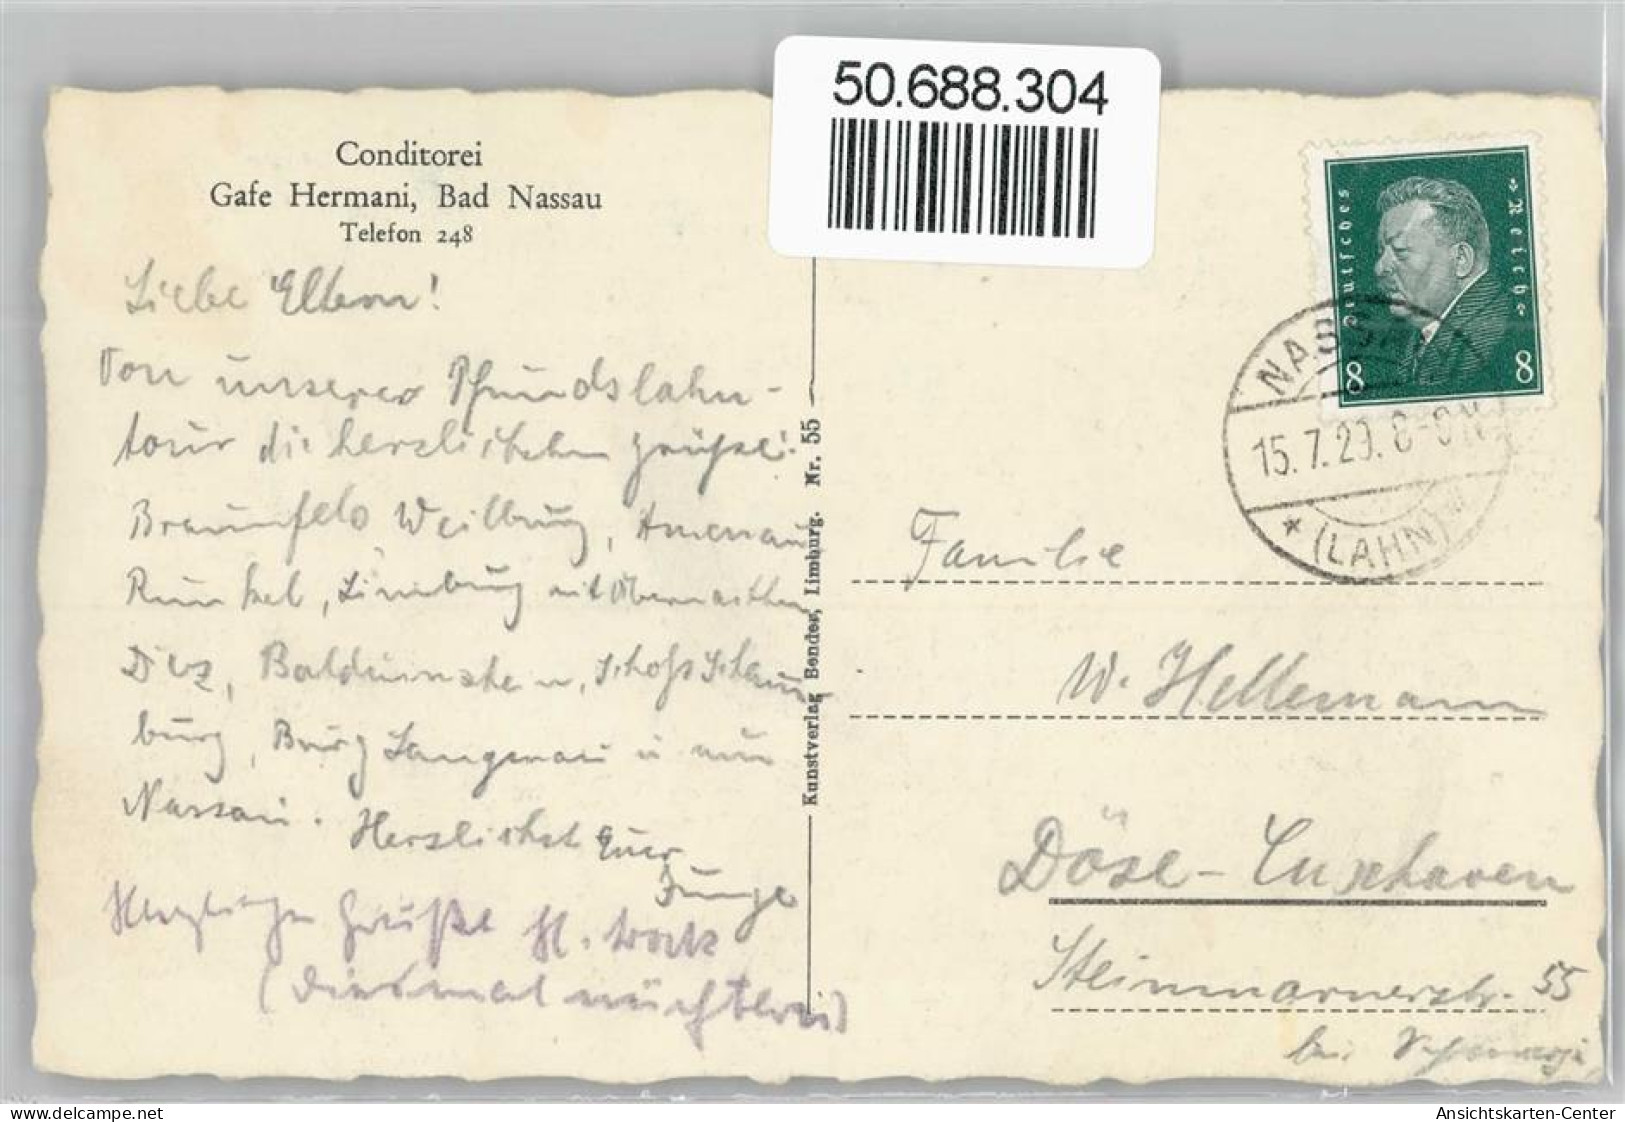 50.688.304
Conditorei
Gafe Hermani, Bad Nassau
Telefon 248
Liebe Eltern!
Von unserer Pfundslahn-
tour die herzlichsten Grüße!
Braunfels Weilburg, Aumenau
Runkel, Limburg mit Übernachten
Diez, Balduinstein, Schloß Schaum
burg, Burg Langenau u nun
Nassau. Herzlichst Euer
Junge
Herzliche Grüße
(diesmal
Kunstverlag Bender, Limburg. Nr. 55
Deutsches Reich
8 8
NASSAU
15.7.29. 8-9 N
* (LAHN) *
Familie
W. Hellemann
Döse-Cuxhaven
Steinmarnerstr. 55
bei
www.delcampe.net
Ansichtskarten-Center